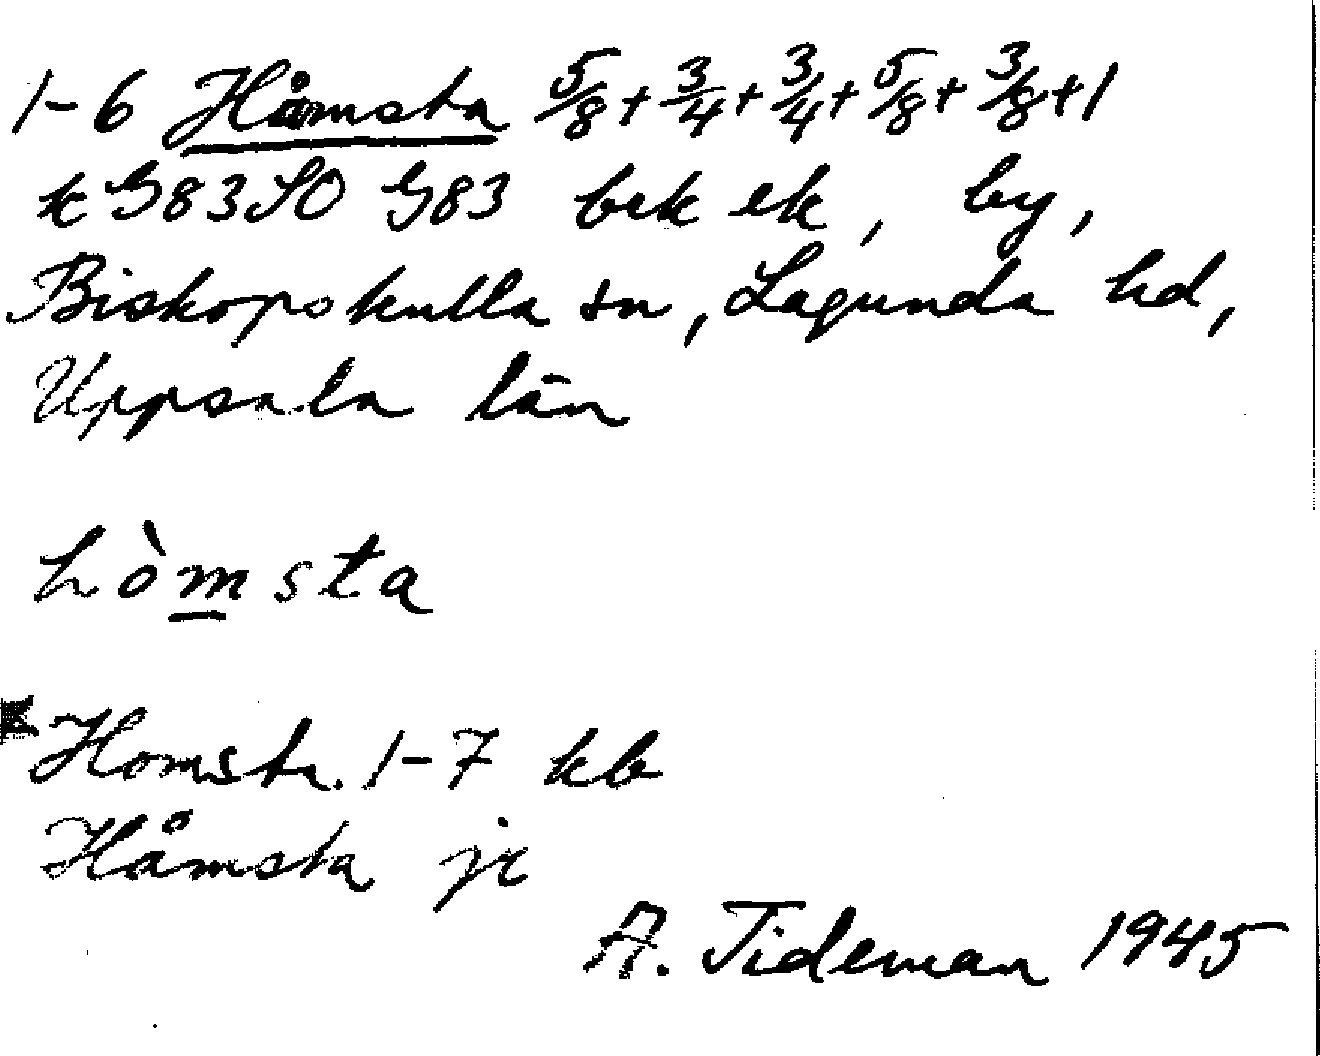 1-6 Håmsta 5/8 + 3/4 + 3/4 + 5/8 + 3/8 + 1
k G83SO G83 bek ek, by,
Biskopskulla sn, Lagunda hd,
Uppsala län
hòmsta
Homsta. 1-7 kb
Håmsta jr
A. Tideman 1945